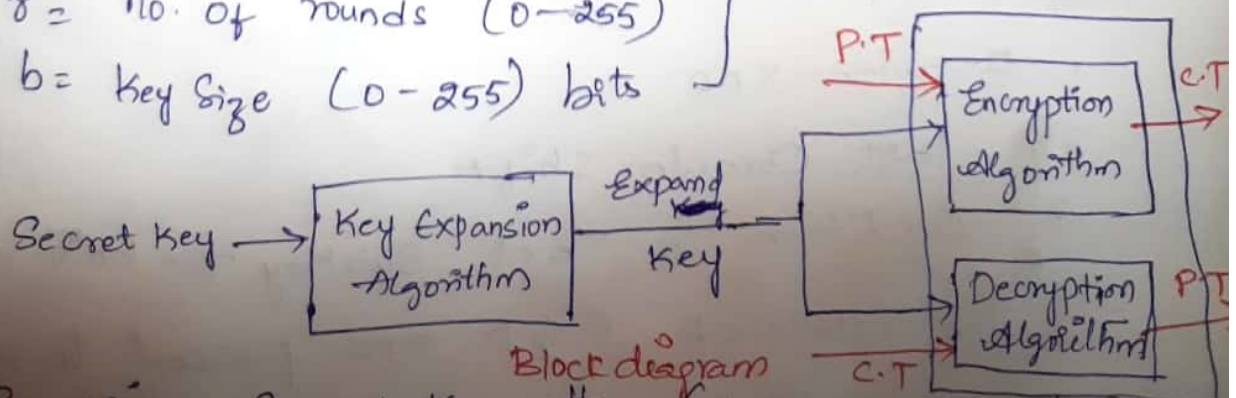 r = no. of rounds (0-255)
b = Key Size (0-255) bits
P.T
Encryption
Algorithm
C.T
Secret Key
Key Expansion
Algorithm
Expand
Key
Decryption
Algorithm
P.T
C.T
Block diagram